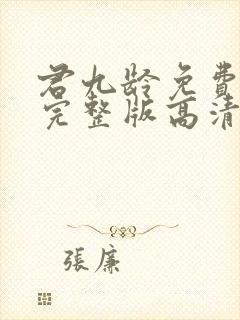 君九龄免費
完整版高清
張廉